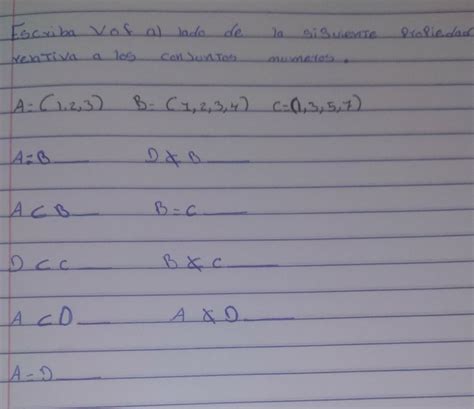 Escriba V o f al lado de la siguiente Propiedad
rentiva a los conjuntos numeros.
A=(1,2,3) B=(1,2,3,4) C=(1,3,5,7)
A=B___ D⊄B___
A⊂B___ B=C___
D⊂C___ B⊄C___
A⊂D___ A⊄D___
A=D___